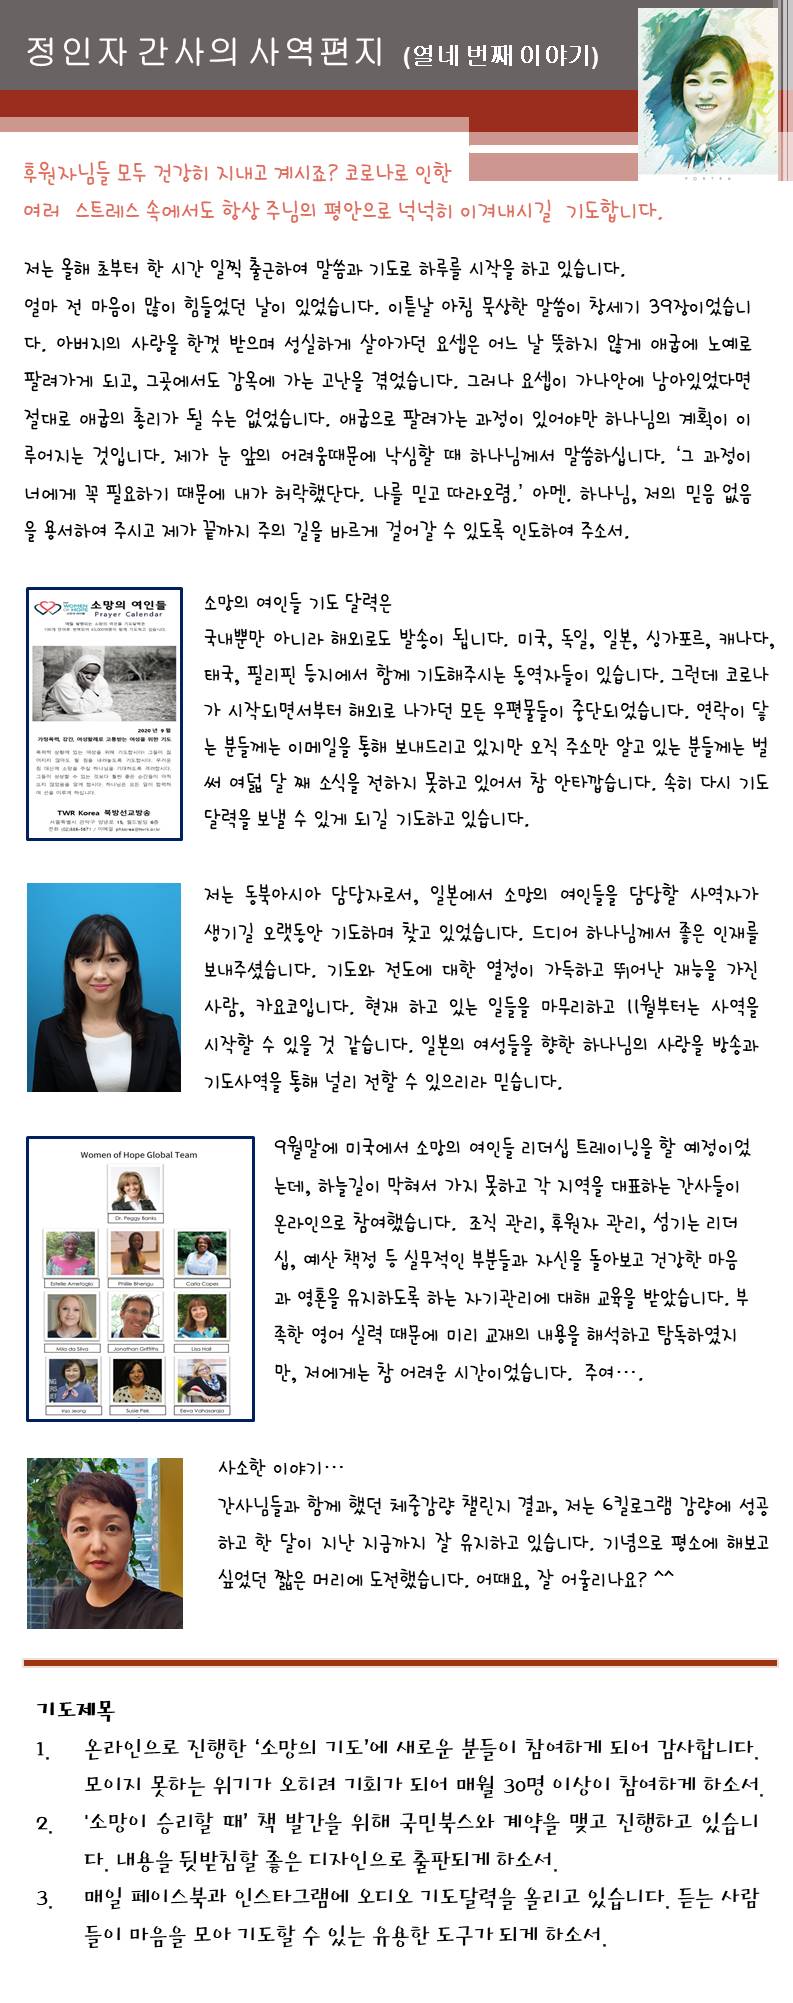 정인자 간사의 사역편지 (열네 번째 이야기)
후원자님들 모두 건강히 지내고 계시죠? 코로나로 인한
여러 스트레스 속에서도 항상 주님의 평안으로 넉넉히 이겨내시길 기도합니다.
저는 올해 초부터 한 시간 일찍 출근하여 말씀과 기도로 하루를 시작을 하고 있습니다.
얼마 전 마음이 많이 힘들었던 날이 있었습니다. 이튿날 아침 묵상한 말씀이 창세기 39장이었습니
다. 아버지의 사랑을 한껏 받으며 성실하게 살아가던 요셉은 어느 날 뜻하지 않게 애굽에 노예로
팔려가게 되고, 그곳에서도 감옥에 가는 고난을 겪었습니다. 그러나 요셉이 가나안에 남아있었다면
절대로 애굽의 총리가 될 수는 없었습니다. 애굽으로 팔려가는 과정이 있어야만 하나님의 계획이 이
루어지는 것입니다. 제가 눈 앞의 어려움때문에 낙심할 때 하나님께서 말씀하십니다. ‘그 과정이
너에게 꼭 필요하기 때문에 내가 허락했단다. 나를 믿고 따라오렴.’ 아멘. 하나님, 저의 믿음 없음
을 용서하여 주시고 제가 끝까지 주의 길을 바르게 걸어갈 수 있도록 인도하여 주소서.
WOMEN OF HOPE 소망의 여인들
Prayer Calendar
2020 년 9 월
가정폭력, 강간, 여성할례로 고통받는 여성을 위한 기도
TWR Korea 북방선교방송
소망의 여인들 기도 달력은
국내뿐만 아니라 해외로도 발송이 됩니다. 미국, 독일, 일본, 싱가포르, 캐나다,
태국, 필리핀 등지에서 함께 기도해주시는 동역자들이 있습니다. 그런데 코로나
가 시작되면서부터 해외로 나가던 모든 우편물들이 중단되었습니다. 연락이 닿
는 분들께는 이메일을 통해 보내드리고 있지만 오직 주소만 알고 있는 분들께는 벌
써 여덟 달 째 소식을 전하지 못하고 있어서 참 안타깝습니다. 속히 다시 기도
달력을 보낼 수 있게 되길 기도하고 있습니다.
저는 동북아시아 담당자로서, 일본에서 소망의 여인들을 담당할 사역자가
생기길 오랫동안 기도하며 찾고 있었습니다. 드디어 하나님께서 좋은 인재를
보내주셨습니다. 기도와 전도에 대한 열정이 가득하고 뛰어난 재능을 가진
사람, 카요코입니다. 현재 하고 있는 일들을 마무리하고 11월부터는 사역을
시작할 수 있을 것 같습니다. 일본의 여성들을 향한 하나님의 사랑을 방송과
기도사역을 통해 널리 전할 수 있으리라 믿습니다.
Women of Hope Global Team
Dr. Peggy Banks
Estelle Ametoglo Phillie Bhengu Carla Copes
Mila da Silva Jonathan Griffiths Lisa Hall
Inja Jeong Susie Pek Eeva Vahasaraja
9월말에 미국에서 소망의 여인들 리더십 트레이닝을 할 예정이었
는데, 하늘길이 막혀서 가지 못하고 각 지역을 대표하는 간사들이
온라인으로 참여했습니다. 조직 관리, 후원자 관리, 섬기는 리더
십, 예산 책정 등 실무적인 부분들과 자신을 돌아보고 건강한 마음
과 영혼을 유지하도록 하는 자기관리에 대해 교육을 받았습니다. 부
족한 영어 실력 때문에 미리 교재의 내용을 해석하고 탐독하였지
만, 저에게는 참 어려운 시간이었습니다. 주여….
사소한 이야기…
간사님들과 함께 했던 체중감량 챌린지 결과, 저는 6킬로그램 감량에 성공
하고 한 달이 지난 지금까지 잘 유지하고 있습니다. 기념으로 평소에 해보고
싶었던 짧은 머리에 도전했습니다. 어때요, 잘 어울리나요? ^^
기도제목
1. 온라인으로 진행한 ‘소망의 기도’에 새로운 분들이 참여하게 되어 감사합니다.
모이지 못하는 위기가 오히려 기회가 되어 매월 30명 이상이 참여하게 하소서.
2. '소망이 승리할 때’ 책 발간을 위해 국민북스와 계약을 맺고 진행하고 있습니
다. 내용을 뒷받침할 좋은 디자인으로 출판되게 하소서.
3. 매일 페이스북과 인스타그램에 오디오 기도달력을 올리고 있습니다. 듣는 사람
들이 마음을 모아 기도할 수 있는 유용한 도구가 되게 하소서.